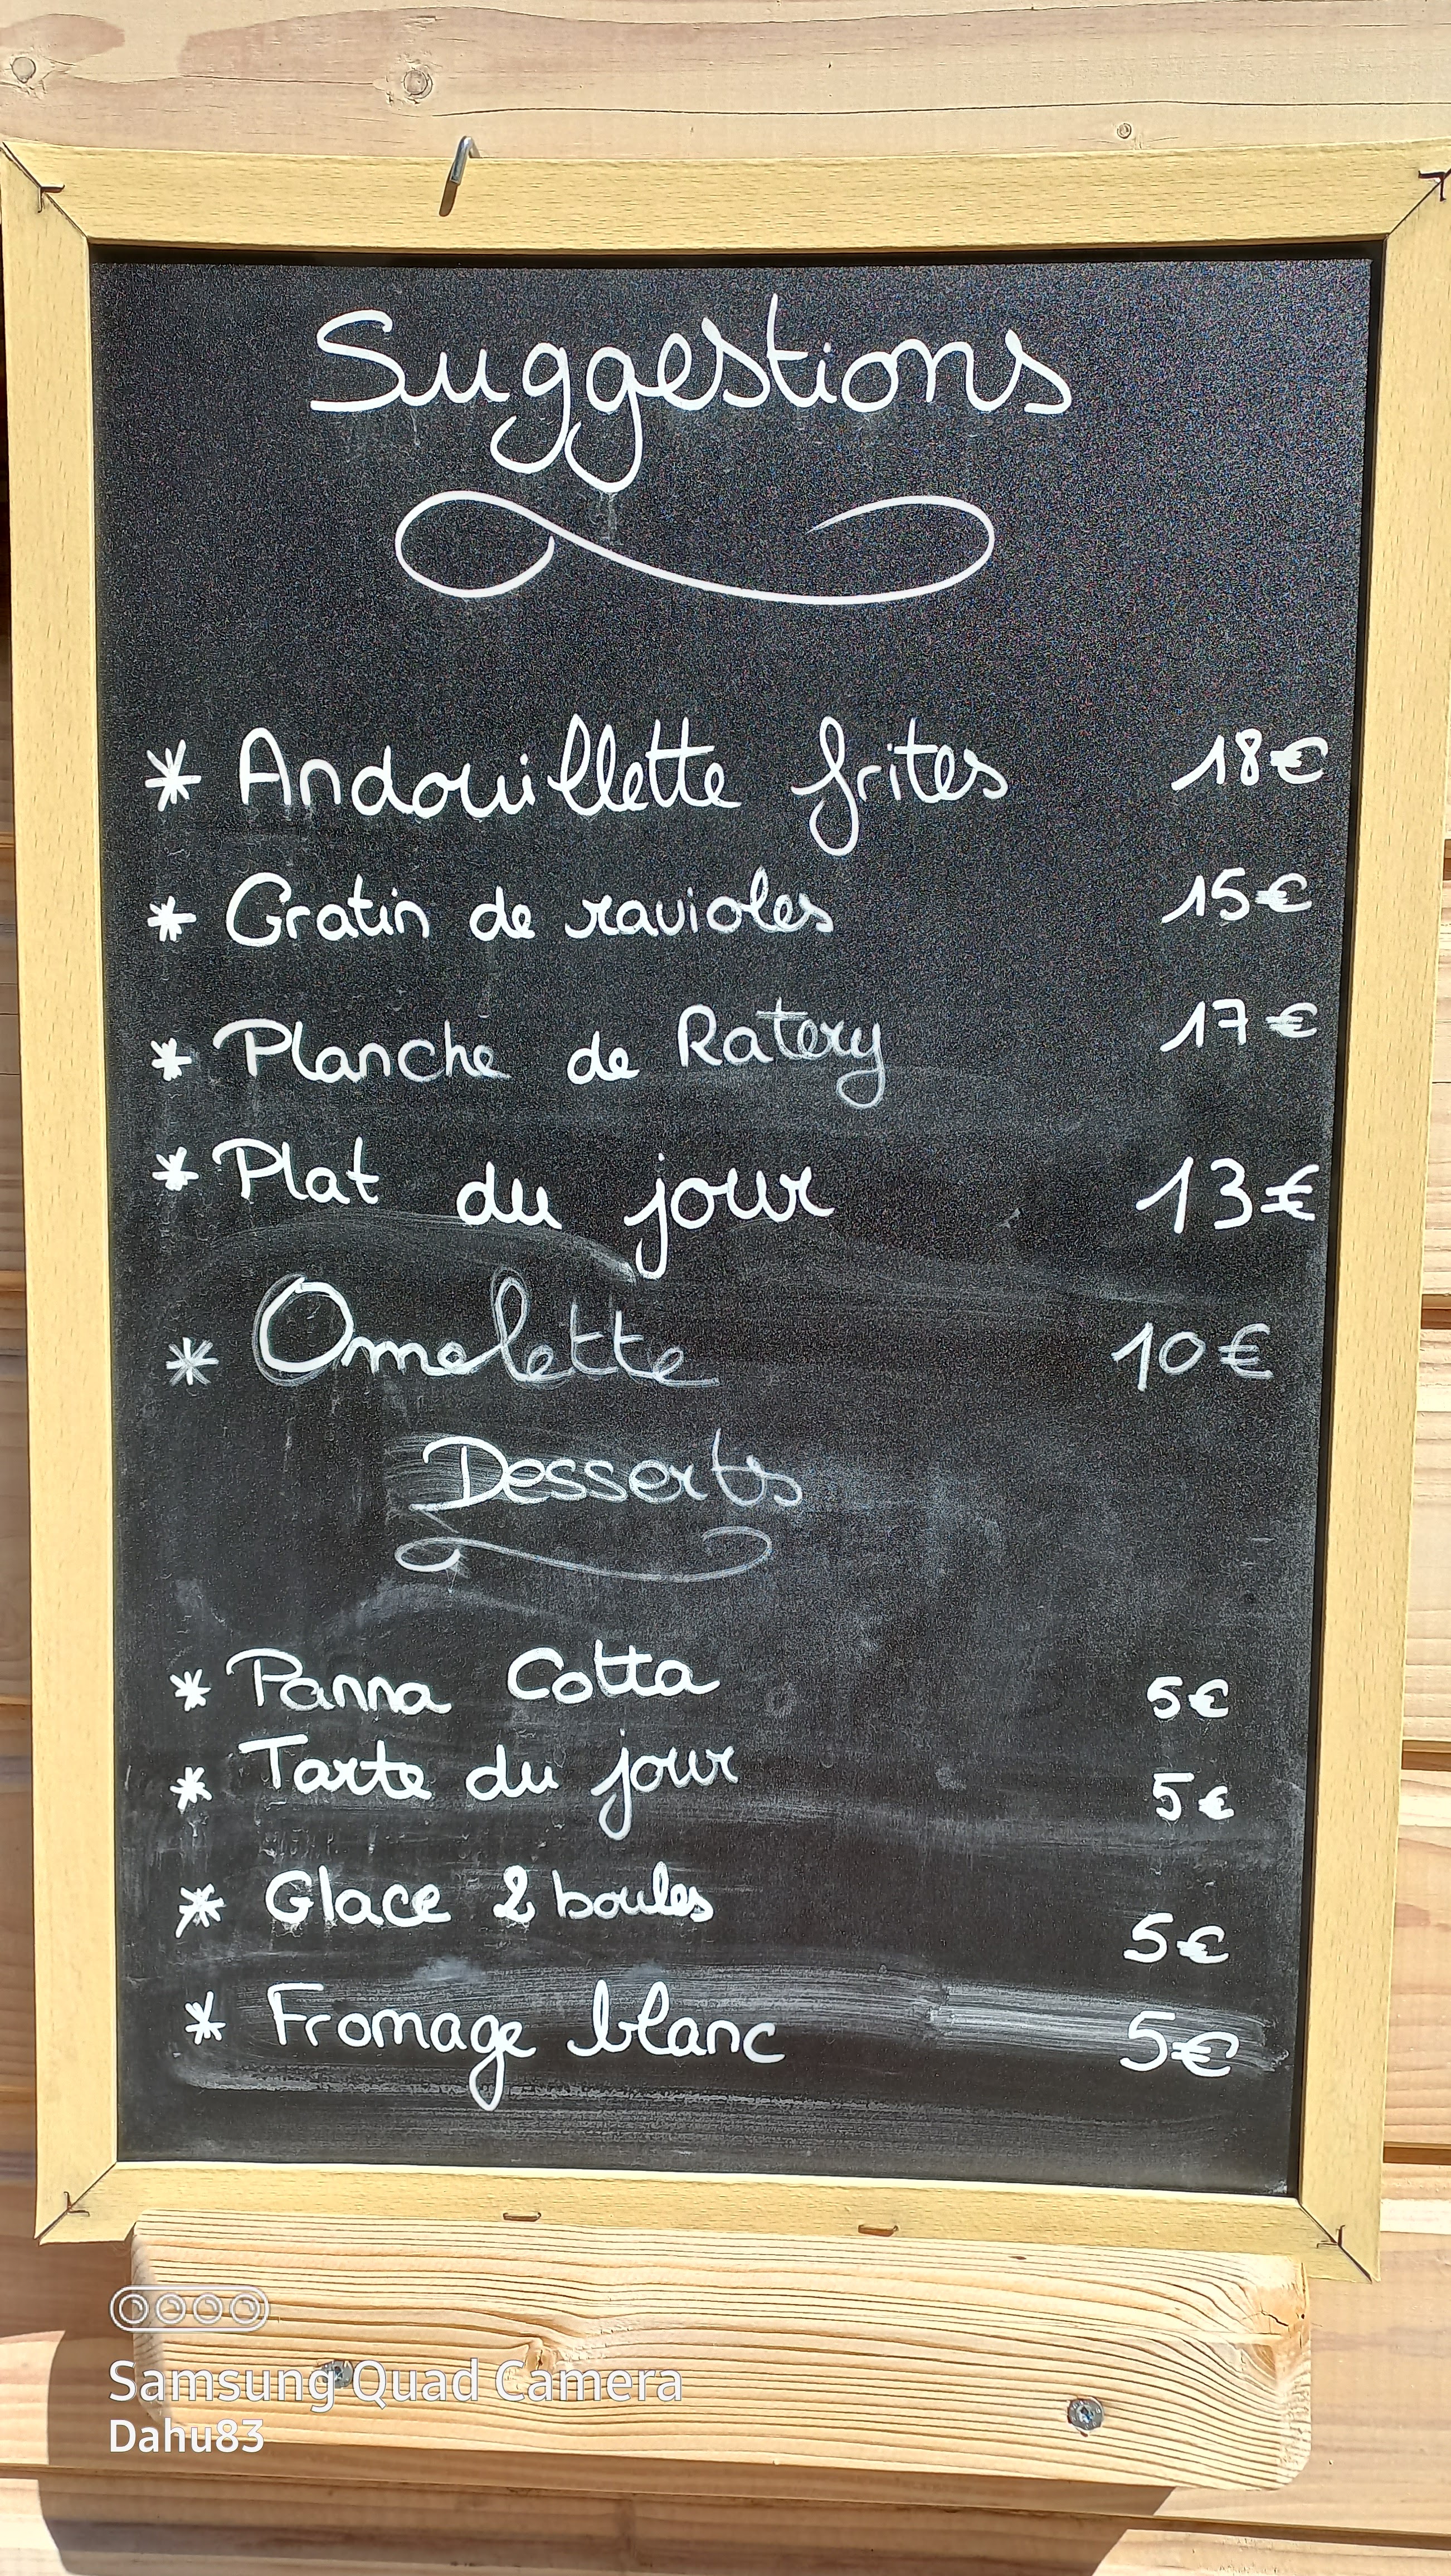 Suggestions
* Andouillette frites 18€
* Gratin de ravioles 15€
* Planche de Ratery 17€
* Plat du jour 13€
* Omelette 10€
Desserts
* Panna Cotta 5€
* Tarte du jour 5€
* Glace 2 boules 5€
* Fromage blanc 5€
Samsung Quad Camera
Dahu83